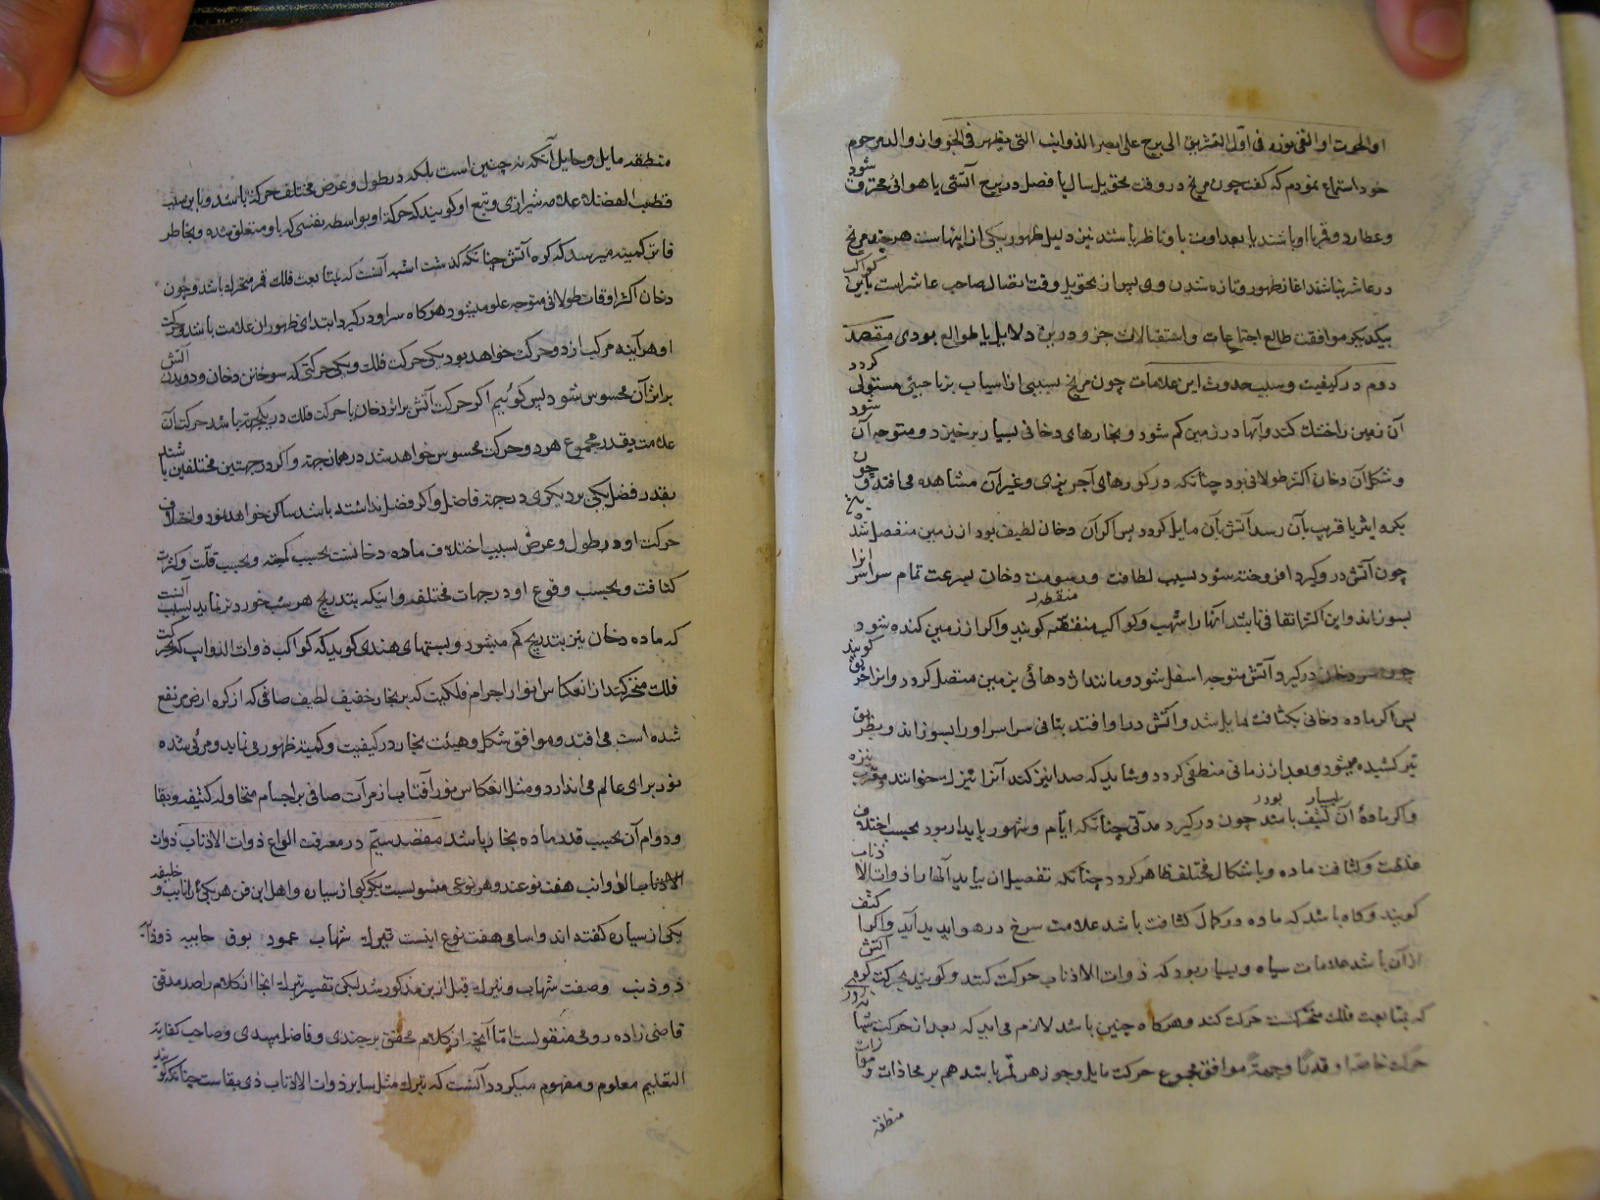 او الحوت او القی نوره فی اوّل التشریق الی برج علی بصر الذوائب التی یظهر فی الجو و از والد مرحوم
خود استماع نمودم که گفت چون مریخ در وقت تحویل سال یا فصل در برج آتشی یا هوائی محترق شود
و عطارد و قمر با او باشند یا بعداوت با و ناظر باشند نیز دلیل ظهور یکی از اینهاست هر چند مریخ
در عاشر نباشد اغاز ظهور و تازه شدن وی پس از تحویل وقت اتصال صاحب عاشر است باین کواکب
بیکدیگر موافقت طالع اجتماعات و استقبالات جزو درین دلایل با طوالع بودی مقصد
دوم در کیفیت و سبب حدوث این علامات چون مریخ بسببی از اسباب بر ناحیتی مستولی گردد
آن زمین را خشک کند و آبها در زمین کم شود و بخارهای دخانی بسیار برخیزد و متوجه آن شود
و شکل آن دخان اکثر طولانی بود چنانکه در کورهای آجر پزی و غیر آن مشاهده می افتد و چون
بکره اثیر یا قریب بآن رسد آتش بآن مایل گردد پس اگر آن دخان لطیف بود از زمین منفصل شد
چون آتش در وی گیرد افروخته شود بسبب لطافت و دسومت دخان بسرعت تمام سراسر انرا
بسوزاند و این اکثر اتفاق نباشد آنها را شهب و کواکب منقضه گویند و اگر از زمین کنده شود
چون دخان درگیرد آتش متوجه اسفل شود و مانند اژدهائی بزمین متصل گردد و انرا حریق گویند
پس اگر ماده دخانی بکثافت مایل شد و آتش در او افتد بتانی سراسر او را بسوزاند و بطریق
تیر کشیده میشود و بعد از زمانی منطفی گردد و شاید که صدا نیز کند آنرا نیزک خوانند و معرب نیزه
و اگر ماده آن کثیف بسیار باشد چون درگیرد مدتی چنانکه ایام و شهور پایدار بود بحسب اختلاف
غلظت و کثافت ماده و باشکال مختلف ظاهر گردد چنانکه تفصیل ان بیاید آنها را ذوات الاذناب
گویند و گاه باشد که ماده در کمال کثافت باشد علامت سرخ در هوا پدید آید و اگر اکثف
از آن باشد علامات سیاه و بسیار بود که ذوات الاذناب حرکت کنند و گویند بحرکت کره آتش
که بمتابعت فلک متحرکست حرکت کند و هرگاه چنین باشد لازم می اید که بعد از حرکت
حرکت خاصه او قدرا و جهة موافق مجموع حرکت مایل و جوزهر قمر باشد هم بر محاذات و موازات
منطقه
منطقه مایل و حایل آنکه نه چنین است بلکه در طول و عرض مختلف حرکة باشد و باین سبب
قطب الفضلا علامه شیرازی و تبع او گویند که حرکة او بواسطه نفسی که باو متعلق شده و بخاطر
فاتر کمینه میرسد که کره آتش چنانکه گذشت اشبه آنست که بمتابعت فلک قمر متحرک باشد و چون
دخان اکثر اوقات طولانی متوجه علو میشود هرگاه سر او درگیرد ابتدای ظهور ان علامت باشد و حرکت
او هر آینه مرکب از دو حرکت خواهد بود یکی حرکت فلک و یکی حرکتی که سوختن دخان و دویدن آتش
براثر آن محسوس شود پس گوئیم اگر حرکت آتش براثر دخان با حرکت فلک در یکجهة باشد حرکت آن
علامت بقدر مجموع هر دو حرکت محسوس خواهد شد در همانجهة و اگر در جهتین مختلفین باشند
بقدر فضل یکی بر دیگری در جهة فاضل و اگر فضل نداشته باشد ساکن خواهد بود و اختلاف
حرکت او در طول و عرض بسبب اختلاف ماده دخانست بحسب کمیة و بحسب قلت و کثرت
کثافت و بحسب وقوع او در جهات مختلفه و اینکه بتدریج هر شب خوردتر نماید بسبب آنست
که ماده دخان نیز بتدریج کم میشود و بستمهای هندی گوید که کواکب ذوات الذوایب که بحرکت
فلک متحرکند از انعکاس انوار اجرام فلکیست که بر بخار خفیف لطیف صافی که از کره ارض مرتفع
شده است می افتد و موافق شکل و هیئت بخار در کیفیت و کمیة ظهور می نماید و مرئی شده
نور برای عالم می اندازد و مثل انعکاس نور آفتاب از مرآت صافی بر اجسام متحاوله کثیفه و بقا
و دوام آن بحسب قدر ماده بخار باشد مقصد سیّم در معرفت انواع ذوات الاذناب ذوات
الاذناب الذوائب هفت نوعند و هر نوعی منسوبست بکوکبی از سیاره و اهل این فن هر یکی را نایب و خلیفه
یکی از سیاره گفته اند و اسامی هفت نوع اینست نیزک شهاب عمود بوق حابیه ذوذوابه
ذوذنب وصفت شهاب و نیزک قبل ازین مذکور شد لیکن تفسیر نیزک اینجا از کلام راصد مدقق
قاضی زاده رومی منقولست امّا آنچه از کلام محقق برجندی و فاضل میبدی و صاحب کفایة
التعلیم معلوم و مفهوم میگردد آنست که نیزک مثل سایر ذوات الاذناب ذی بقاست چنانکه گویند